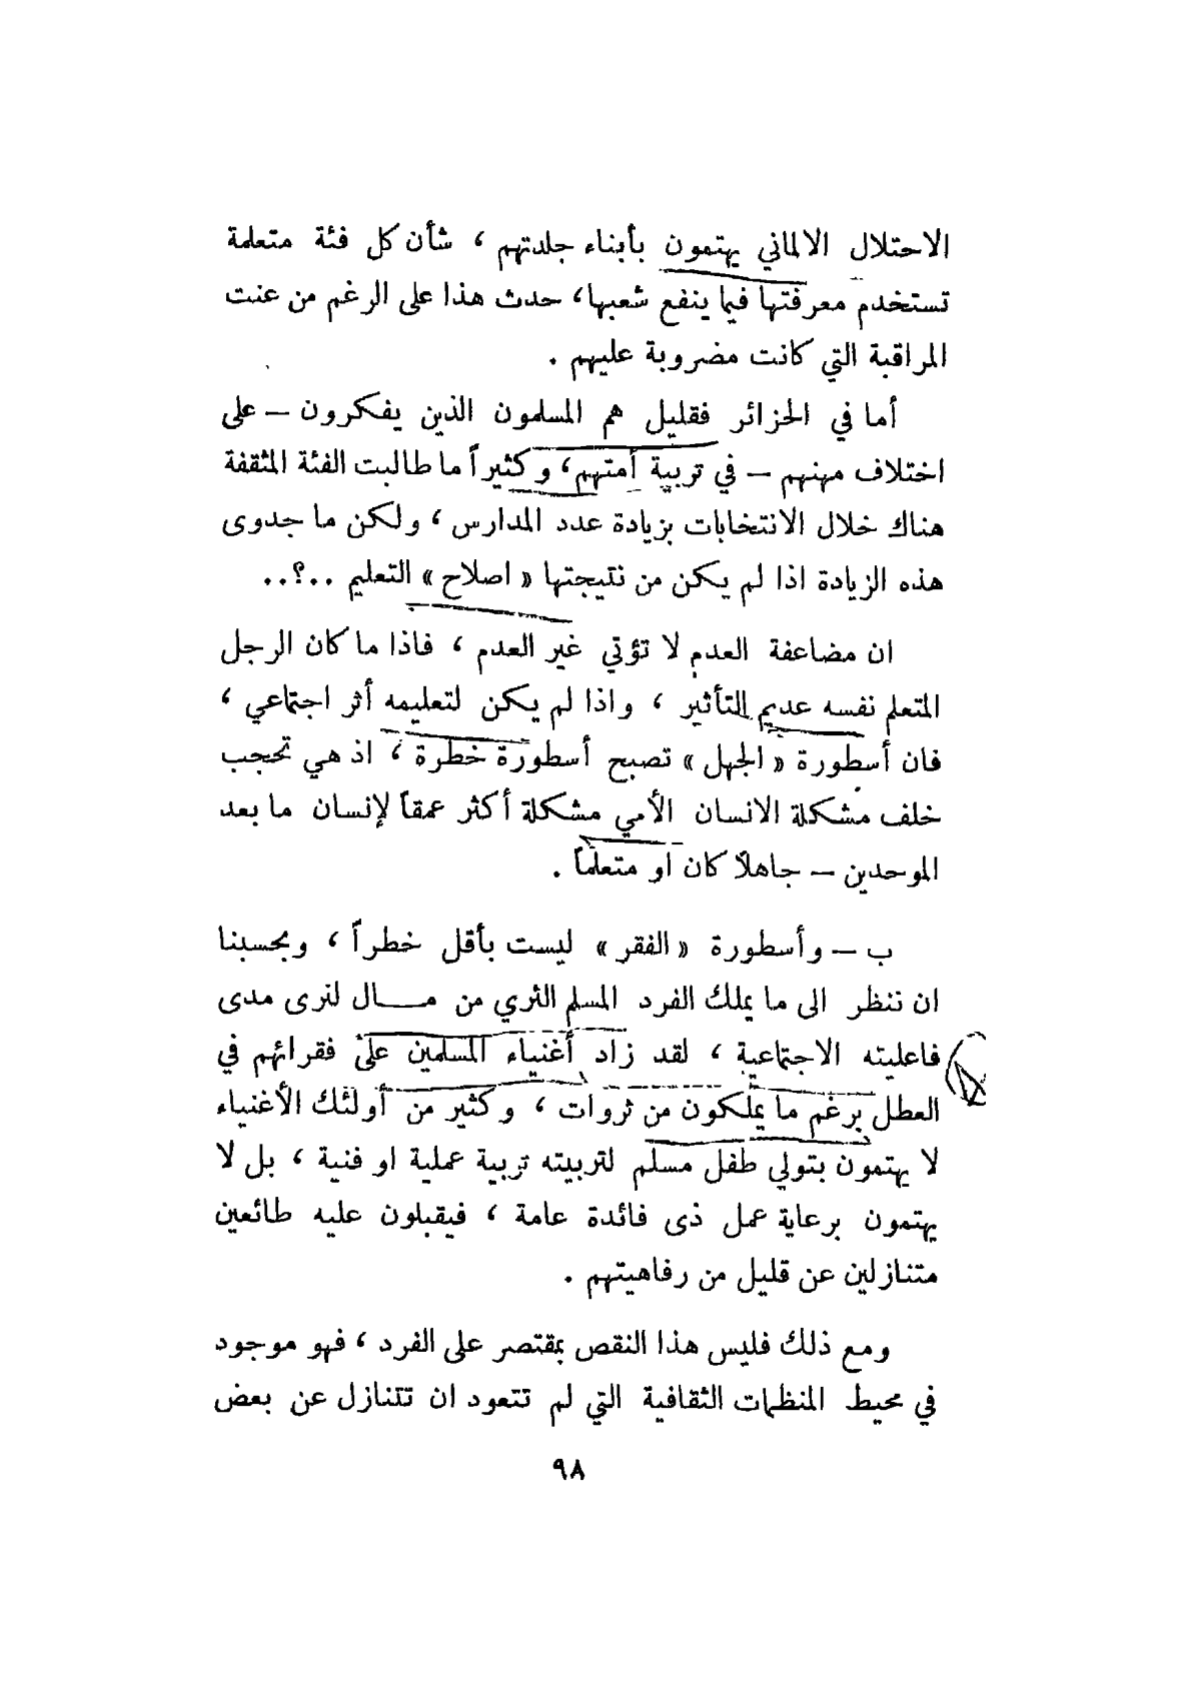 الاحتلال الالماني يهتمون بأبناء جلدتهم ، شأن كل فئة متعلمة
تستخدم معرفتها فيما ينفع شعبها، حدث هذا على الرغم من عنت
المراقبة التي كانت مضروبة عليهم .
أما في الجزائر فقليل هم المسلمون الذين يفكرون — على
اختلاف مهنهم — في تربية أمتهم، وكثيراً ما طالبت الفئة المثقفة
هناك خلال الانتخابات بزيادة عدد المدارس ، ولكن ما جدوى
هذه الزيادة اذا لم يكن من نتيجتها « اصلاح » التعليم ..؟..
ان مضاعفة العدم لا تؤتي غير العدم ، فاذا ما كان الرجل
المتعلم نفسه عديم التأثير ، واذا لم يكن لتعليمه أثر اجتماعي ،
فان أسطورة « الجهل » تصبح أسطورة خطرة ، اذ هي تحجب
خلف مشكلة الانسان الأمي مشكلة أكثر عمقاً لإنسان ما بعد
الموحدين — جاهلاً كان او متعلماً .
ب — وأسطورة « الفقر » ليست بأقل خطراً ، وبحسبنا
ان ننظر الى ما يملك الفرد المسلم الثري من مـــال لنرى مدى
فاعليته الاجتماعية ، لقد زاد أغنياء المسلمين على فقرائهم في
العطل برغم ما يملكون من ثروات ، وكثير من أولئك الأغنياء
لا يهتمون بتولي طفل مسلم لتربيته تربية عملية او فنية ، بل لا
يهتمون برعاية عمل ذى فائدة عامة ، فيقبلون عليه طائعين
متنازلين عن قليل من رفاهيتهم .
ومع ذلك فليس هذا النقص بمقتصر على الفرد ، فهو موجود
في محيط المنظمات الثقافية التي لم تتعود ان تتنازل عن بعض
٩٨